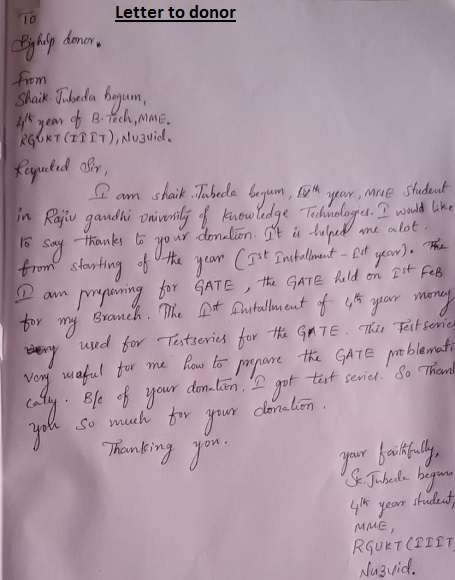 Letter to donor
To
Bighelp donor.
From
Shaik. Jubeda begum,
4th year of B.Tech, MME.
RGUKT (IIIT), Nuzvid.
Respected Sir,
I am shaik. Jubeda begum, IVth year, MME Student
in Rajiv gandhi university of Knowledge Technologies. I would like
to say thanks to your donation. It is helped me alot.
from starting of the year (Ist Installment - Ist year).
I am preparing for GATE, the GATE held on Ist Feb
for my Branch. The Ist Installment of 4th year money
used for Testseries for the GATE. This Test series
very useful for me how to prepare the GATE problemati
cally. B/c of your donation, I got test series. So Than
you so much for your donation.
Thanking you.
your faithfully,
Sk. Jubeda begum
4th year student,
MME,
RGUKT (IIIT)
Nuzvid.